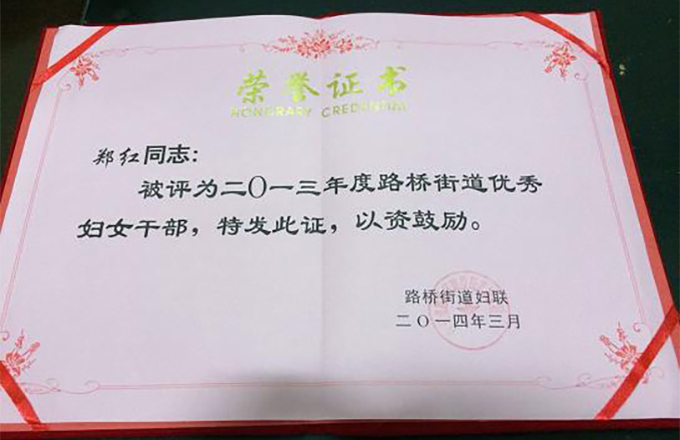 荣誉证书
HONORARY CREDENTIAL
郑红同志：
被评为二〇一三年度路桥街道优秀
妇女干部，特发此证，以资鼓励。
路桥街道妇联
二〇一四年三月